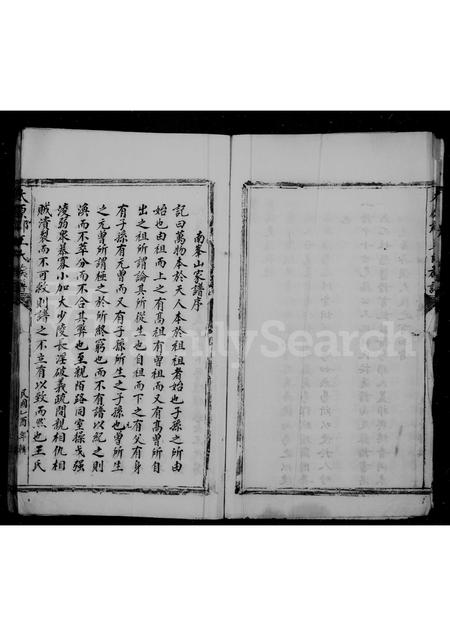 南峯山家譜序
記曰萬物本於天人本於祖祖者始也子孫之所由
始也由祖而上之有高祖有曾祖而又有高曾所自
出之祖所謂論其所從生也自祖而下之有父有身
有子孫有元曾而又有子孫所生之子孫也曾所生
之元曾所謂極之於所終窮也而不有譜以紀之則
渙而不萃分而不合其弊也至親陌路同室操戈強
凌弱衆暴寡小加大少陵長淫破義疏間親相仇相
賊潰裂而不可救則譜之不立有以致而然也王氏
太原郡王氏族譜
民國乙酉年輯
FamilySearch